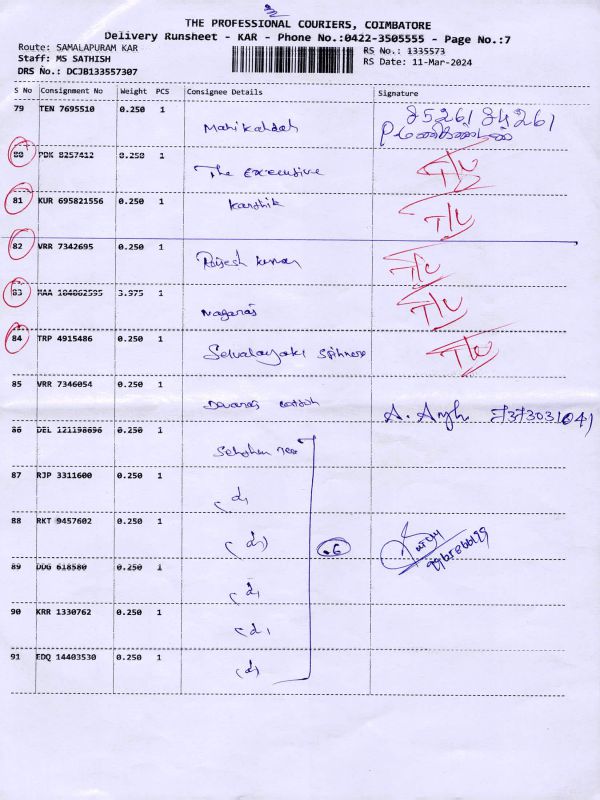 THE PROFESSIONAL COURIERS, COIMBATORE
Delivery Runsheet - KAR - Phone No.:0422-3505555 - Page No.:7
Route: SAMALAPURAM KAR
RS No.: 1335573
Staff: MS SATHISH
RS Date: 11-Mar-2024
DRS No.: DCJB133557307
S No Consignment No Weight PCS Consignee Details Signature
79 TEN 7695510 0.250 1
85261 84261
80 PDK 8257412 0.250 1
The executive T/C
81 KUR 695821556 0.250 1
Karthik T/C
82 VRR 7342695 0.250 1
Rajesh kumar T/C
83 MAA 184862595 3.975 1
Nagaraj T/C
84 TRP 4915486 0.250 1
T/C
85 VRR 7346054 0.250 1
A.
86 DEL 121198696 0.250 1
87 RJP 3311600 0.250 1
88 RKT 9457602 0.250 1
6
89 DDG 618580 0.250 1
90 KRR 1330762 0.250 1
91 EDQ 14403530 0.250 1